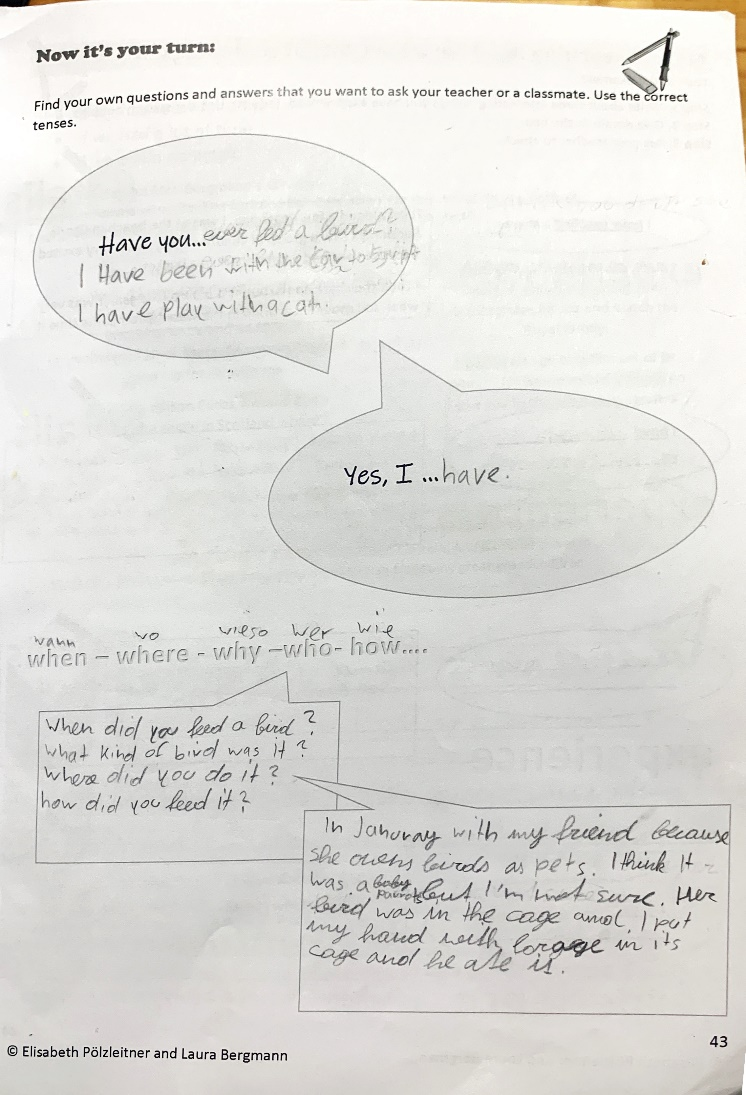 Now it's your turn:
Find your own questions and answers that you want to ask your teacher or a classmate. Use the correct
tenses.
Have you...ever fed a bird?
I Have been with the to
I have play with a cat.
Yes, I ...have.
wann vo vieso wer wie
when – where - why –who- how....
When did you feed a bird?
what kind of bird was it?
where did you do it?
how did you feed it?
In Januray with my friend because
she owens birds as pets. I think It
was a baby parrot but I'm not sure. Her
bird was in the cage and I put
my hand with forage in its
cage and he ate is.
43
© Elisabeth Pölzleitner and Laura Bergmann